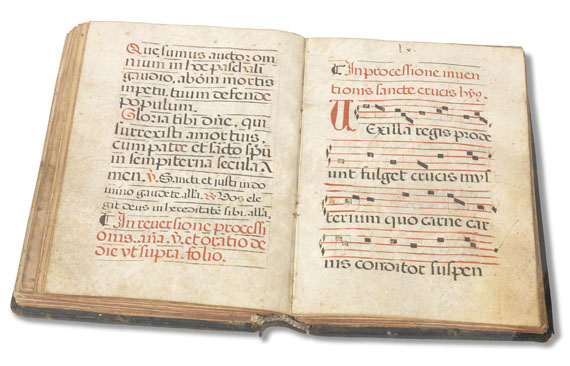 Quesumus auctor om
nium in hoc paschali
gaudio, ab om̄i mortis
impetu tuum defende
populum.
Gloria tibi dn̄e, qui
surrexisti a mortuis,
cum patre et sācto spū
in sempiterna secula A
men. ℣. Sancti et justi in do
mino gaudete. all'a. ℟. Vos ele
git deus in hereditatē sibi. all'a.
¶ In reversione processi
onis. an̄a. ℣. et oratio de
die vt supra. folio.
lx.
¶ In processione inuen
tionis sancte crucis hyṽ.
VExilla regis prode
unt fulget crucis mys
terium quo carne car
nis conditor suspen